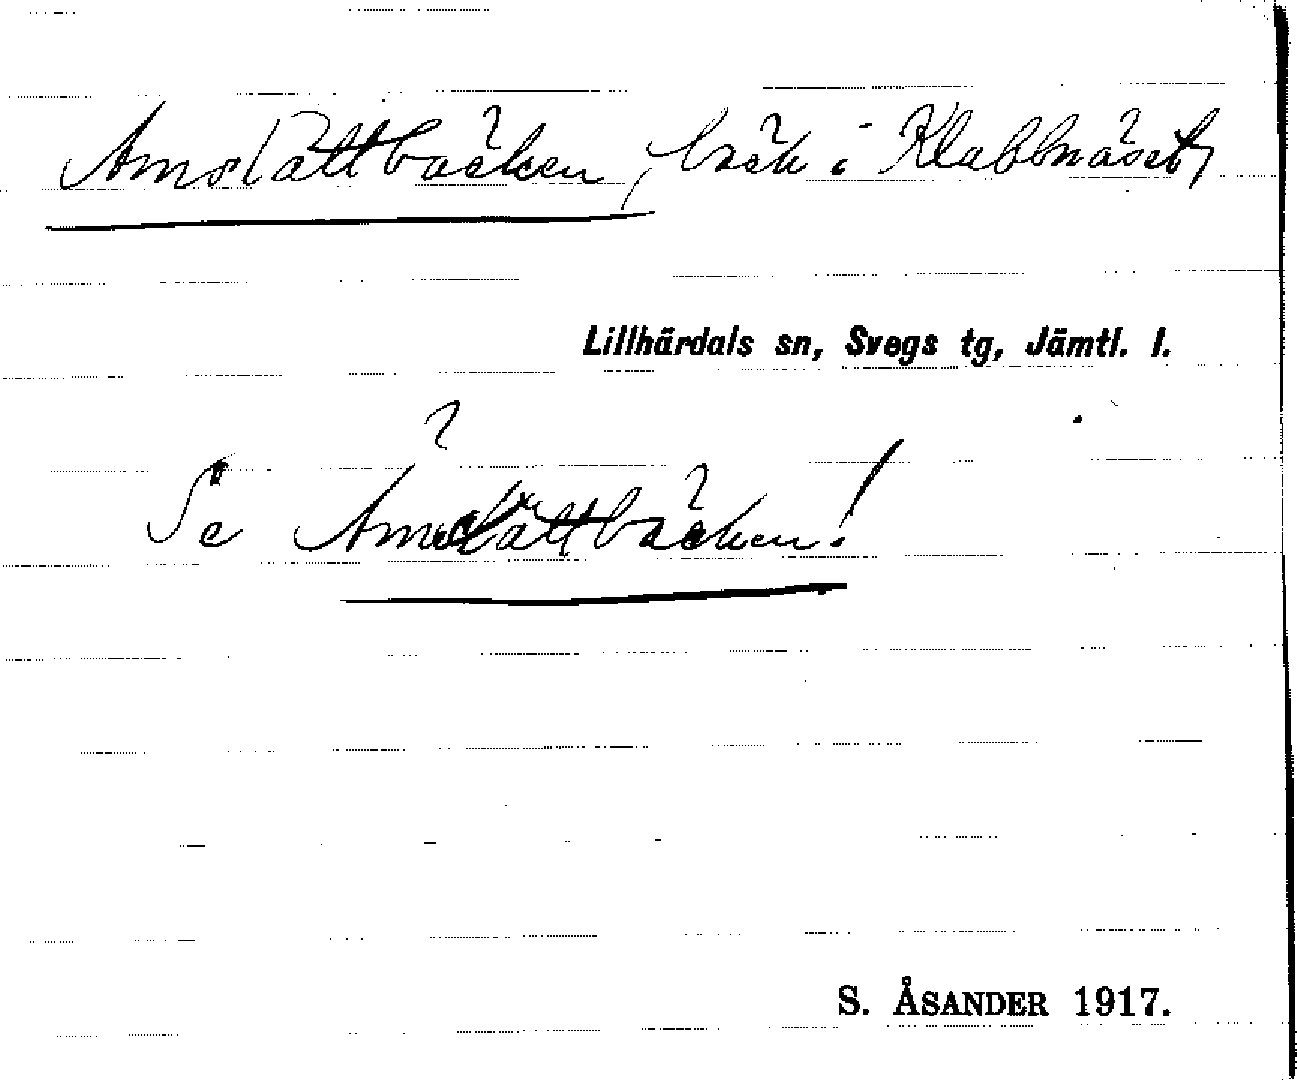 Amslåttbäcken, bäck i Klabbnäset,
Lillhärdals sn, Svegs tg, Jämtl. l.
Se Åmslåttbäcken!
S. ÅSANDER 1917.